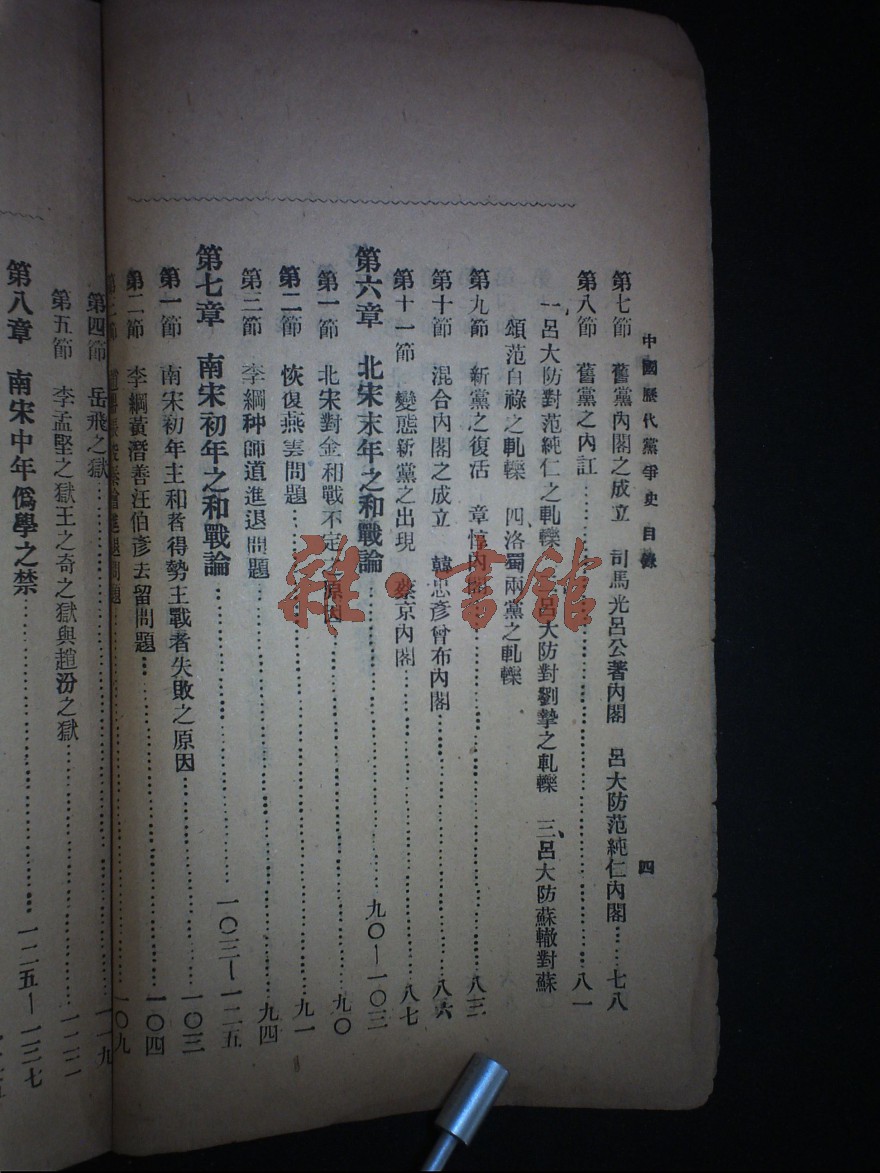 中國歷代黨爭史 目錄 四
第七節 舊黨內閣之成立 司馬光呂公著內閣 呂大防范純仁內閣……七八
第八節 舊黨之內訌……八一
一、呂大防對范純仁之軋轢 二、呂大防對劉摯之軋轢 三、呂大防蘇轍對蘇
頌范百祿之軋轢 四、洛蜀兩黨之軋轢
第九節 新黨之復活 章惇內閣……八三
第十節 混合內閣之成立 韓忠彥曾布內閣……八六
第十一節 變態新黨之出現 蔡京內閣……八七
第六章 北宋末年之和戰論……九〇—一〇三
第一節 北宋對金和戰不定之原因……九〇
第二節 恢復燕雲問題……九一
第三節 李綱种師道進退問題……九四
第七章 南宋初年之和戰論……一〇三—一二五
第一節 南宋初年主和者得勢主戰者失敗之原因……一〇三
第二節 李綱黃潛善汪伯彥去留問題……一〇四
第三節 問題……一〇九
第四節 岳飛之獄……一一九
第五節 李孟堅之獄王之奇之獄與趙汾之獄……一二二
第八章 南宋中年僞學之禁……一二五—一三七
雜·書館